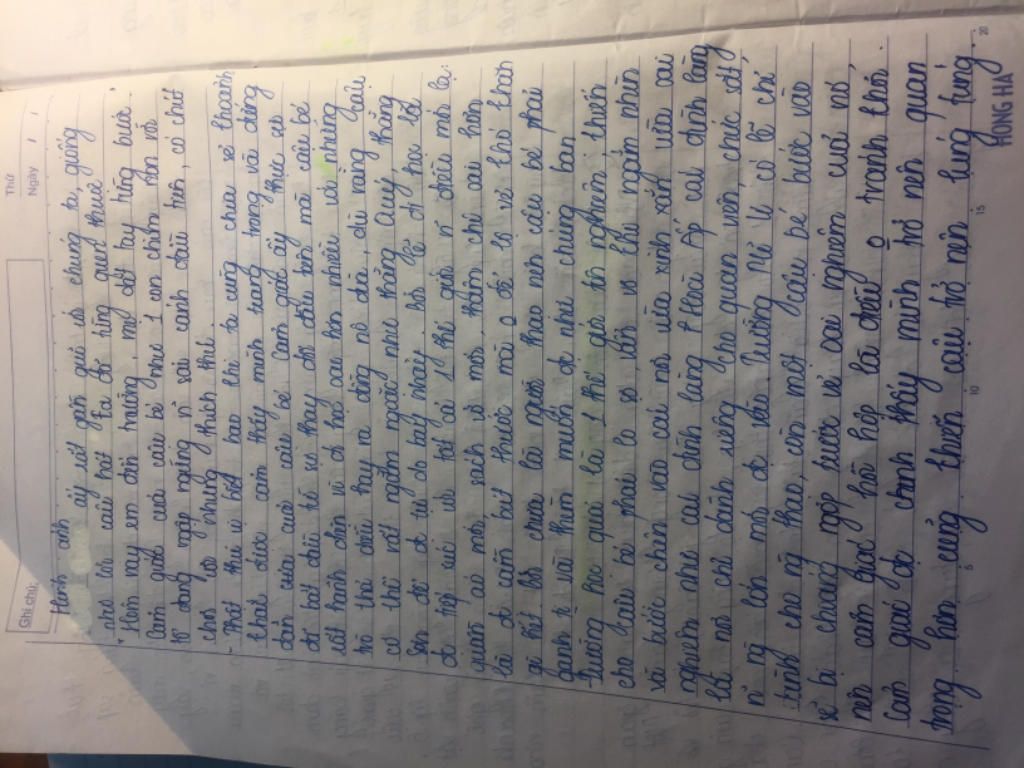 Thứ
Ngày / /
Ghi chú:
Hình ảnh ấy rất gần gũi với chúng ta, giống
như lời câu hát ta đã từng quen thuộc
"Hôm nay em đến trường, mẹ dắt tay từng bước".
Cảm giác của cậu bé như 1 con chim non nó
tỏ đang ngập ngừng vì sải cánh đầu tiên, có chút
chơi vơi nhưng thích thú.
- Thật thú vị biết bao khi ta cũng chia sẻ thành
thật được cảm thấy mình trang trọng và đứng
đắn của cậu bé. Cảm giác ấy thực sự
đã bắt đầu từ sự thay đổi đầu tiên mà cậu bé
rất hãnh diện vì đi học oai hơn nhiều với những
trò thả diều hay ra đồng nô đùa, dù rằng cậu
có thể rất ngắm ngoài như thằng Quý, thằng
Sơn để được tự do bay nhảy. Nó kể đi học tất
được tiếp xúc với tất cả 1 thế giới vì điều mới lạ:
quần áo mới, sách vở mới, thậm chí oai hơn
là được cầm bút thước mà o để lộ vẻ khó khăn
gì. Nó chưa là người thạo nên cậu bé phải
ganh tị và thèm muốn được như chúng bạn.
Thưởng cho quà là thế giới tôn nghiêm khiến
cho cậu bé phải lo sợ vẩn vơ khi ngắm nhìn
và bước chân vào cái nơi vừa xinh xắn vừa oai
nghiêm như cái đình làng Hoà Ấp cái đình làng
là nơi chỉ dành riêng cho quan viên chức sắt
vì ng lớn mới được vào. Trường Mĩ Lí có lẽ chỉ
dành cho ng thạo, còn một cậu bé bước vào
sẽ bị choáng ngợp trước vẻ oai nghiêm của nó
nên cảm giác hồi hộp là điều o tránh khỏi.
Cảm giác được chính thấy mình trở nên quan
trọng hơn cũng khiến cậu trở nên lúng túng.
5 10 15 20
HONG HA